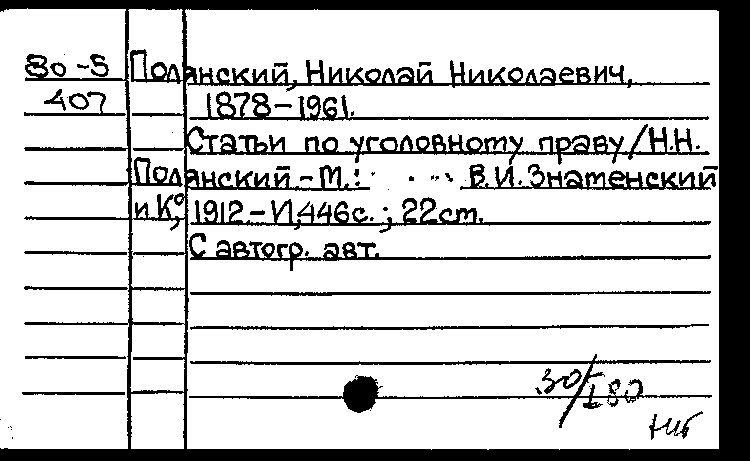 80-5 Полянский, Николай Николаевич,
407 1878-1961.
Статьи по уголовному праву/Н.Н.
Полянский - М.: В.И. Знаменский
и К°, 1912. - VI, 446с.; 22см.
С автогр. авт.